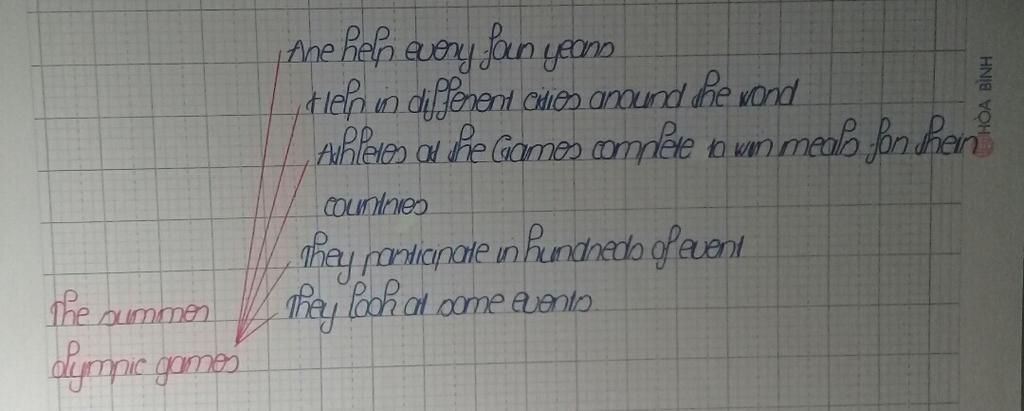 Are help every four years
Help in different cities around the word
Athletes at the Games complete to win meals for their
countries
They participate in hundreds of event
They look at some events
The summer
olympic games
HÒA BÌNH